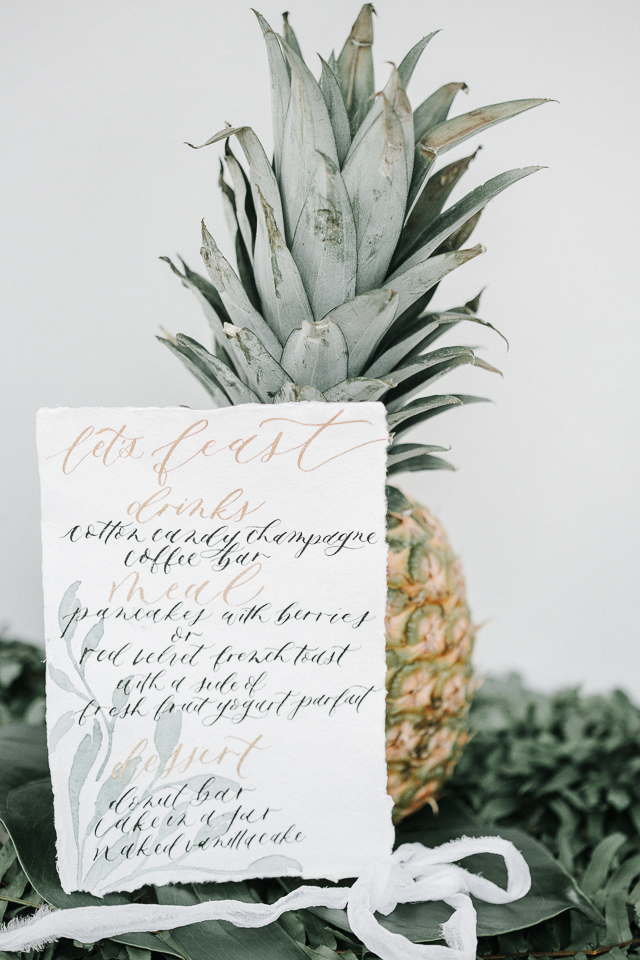 let's feast
drinks
cotton candy champagne
coffee bar
meal
pancakes with berries
or
red velvet french toast
with a side of
fresh fruit yogurt parfait
dessert
donut bar
cake in a jar
naked vanilla cake